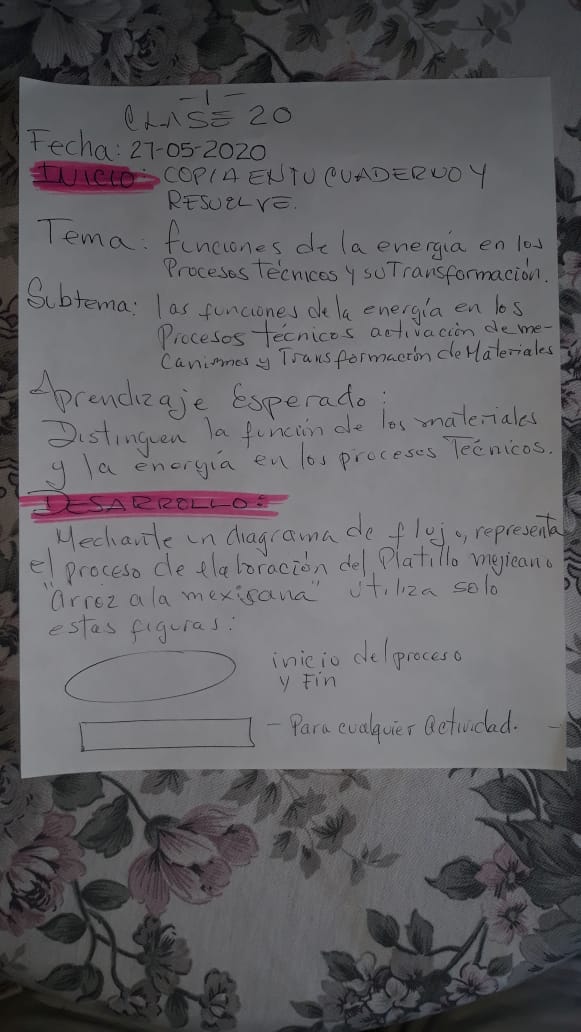 -1-
CLASE 20
Fecha: 27-05-2020
INICIO: COPIA EN TU CUADERNO Y
RESUELVE.
Tema: funciones de la energía en los
Procesos Técnicos y su Transformación.
Subtema: las funciones de la energía en los
Procesos técnicos activación de me-
canismos y Transformación de Materiales
Aprendizaje Esperado:
Distinguen la función de los materiales
y la energía en los procesos Técnicos.
DESARROLLO:
Mechante un diagrama de flujo, representa
el proceso de elaboración del Platillo mejicano
"arroz a la mexicana" utiliza solo
estas figuras:
inicio del proceso
y Fin
- Para cualquier actividad. -